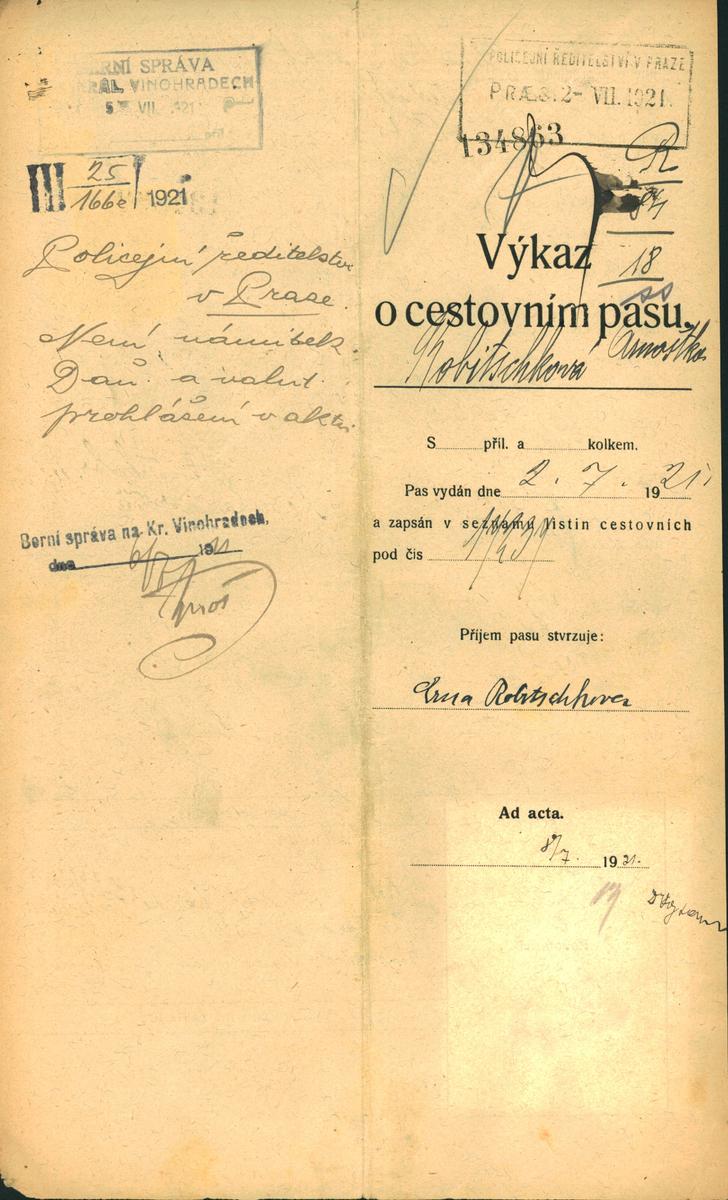 BERNÍ SPRÁVA
KRÁL. VINOHRADECH
5 VII. 1921
III 25/166e 1921
Policejní ředitelství
v Praze.
Není námitek.
Daň. a valut.
prohlášení v aktu
Berní správa na Kr. Vinohradech,
dne 6/7 1921
POLICEJNÍ ŘEDITELSTVÍ V PRAZE
PRÆS. 2- VII. 1921.
134863
R
18
Výkaz
o cestovním pasu.
Robitschková Arnoštka
S příl. a kolkem.
Pas vydán dne 2. 7. 1921
a zapsán v seznamu listin cestovních
pod čís
Příjem pasu stvrzuje:
Erna Robitschkova
Ad acta.
8/7. 1921.